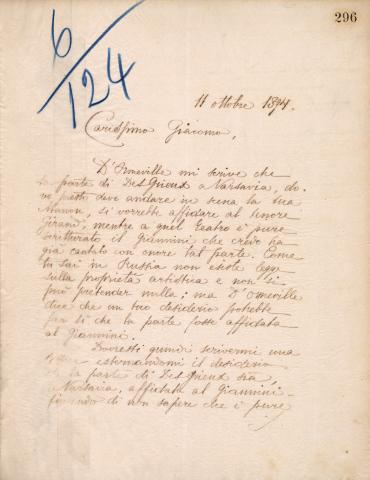 296
6/124
11 ottobre 1894.
Carissimo Giacomo,
D'Ormeville mi scrive che
la parte di Des Grieux a Varsavia, do-
ve presto deve andare in scena la tua
Manon, si vorrebbe affidare al tenore
Giraud, mentre a quel teatro è pure
scritturato il Giannini che credo ha
già cantato con onore tal parte. Come
tu sai in Russia non esiste legge
sulla proprietà artistica e non si
può pretender nulla; ma D'Ormeville
dice che un tuo desiderio potrebbe
far sì che la parte fosse affidata
al Giannini.
Dovresti quindi scrivermi una
esternandomi il desiderio
che la parte di Des Grieux sia,
a Varsavia, affidata al Giannini-
fingendo di non sapere che è pure